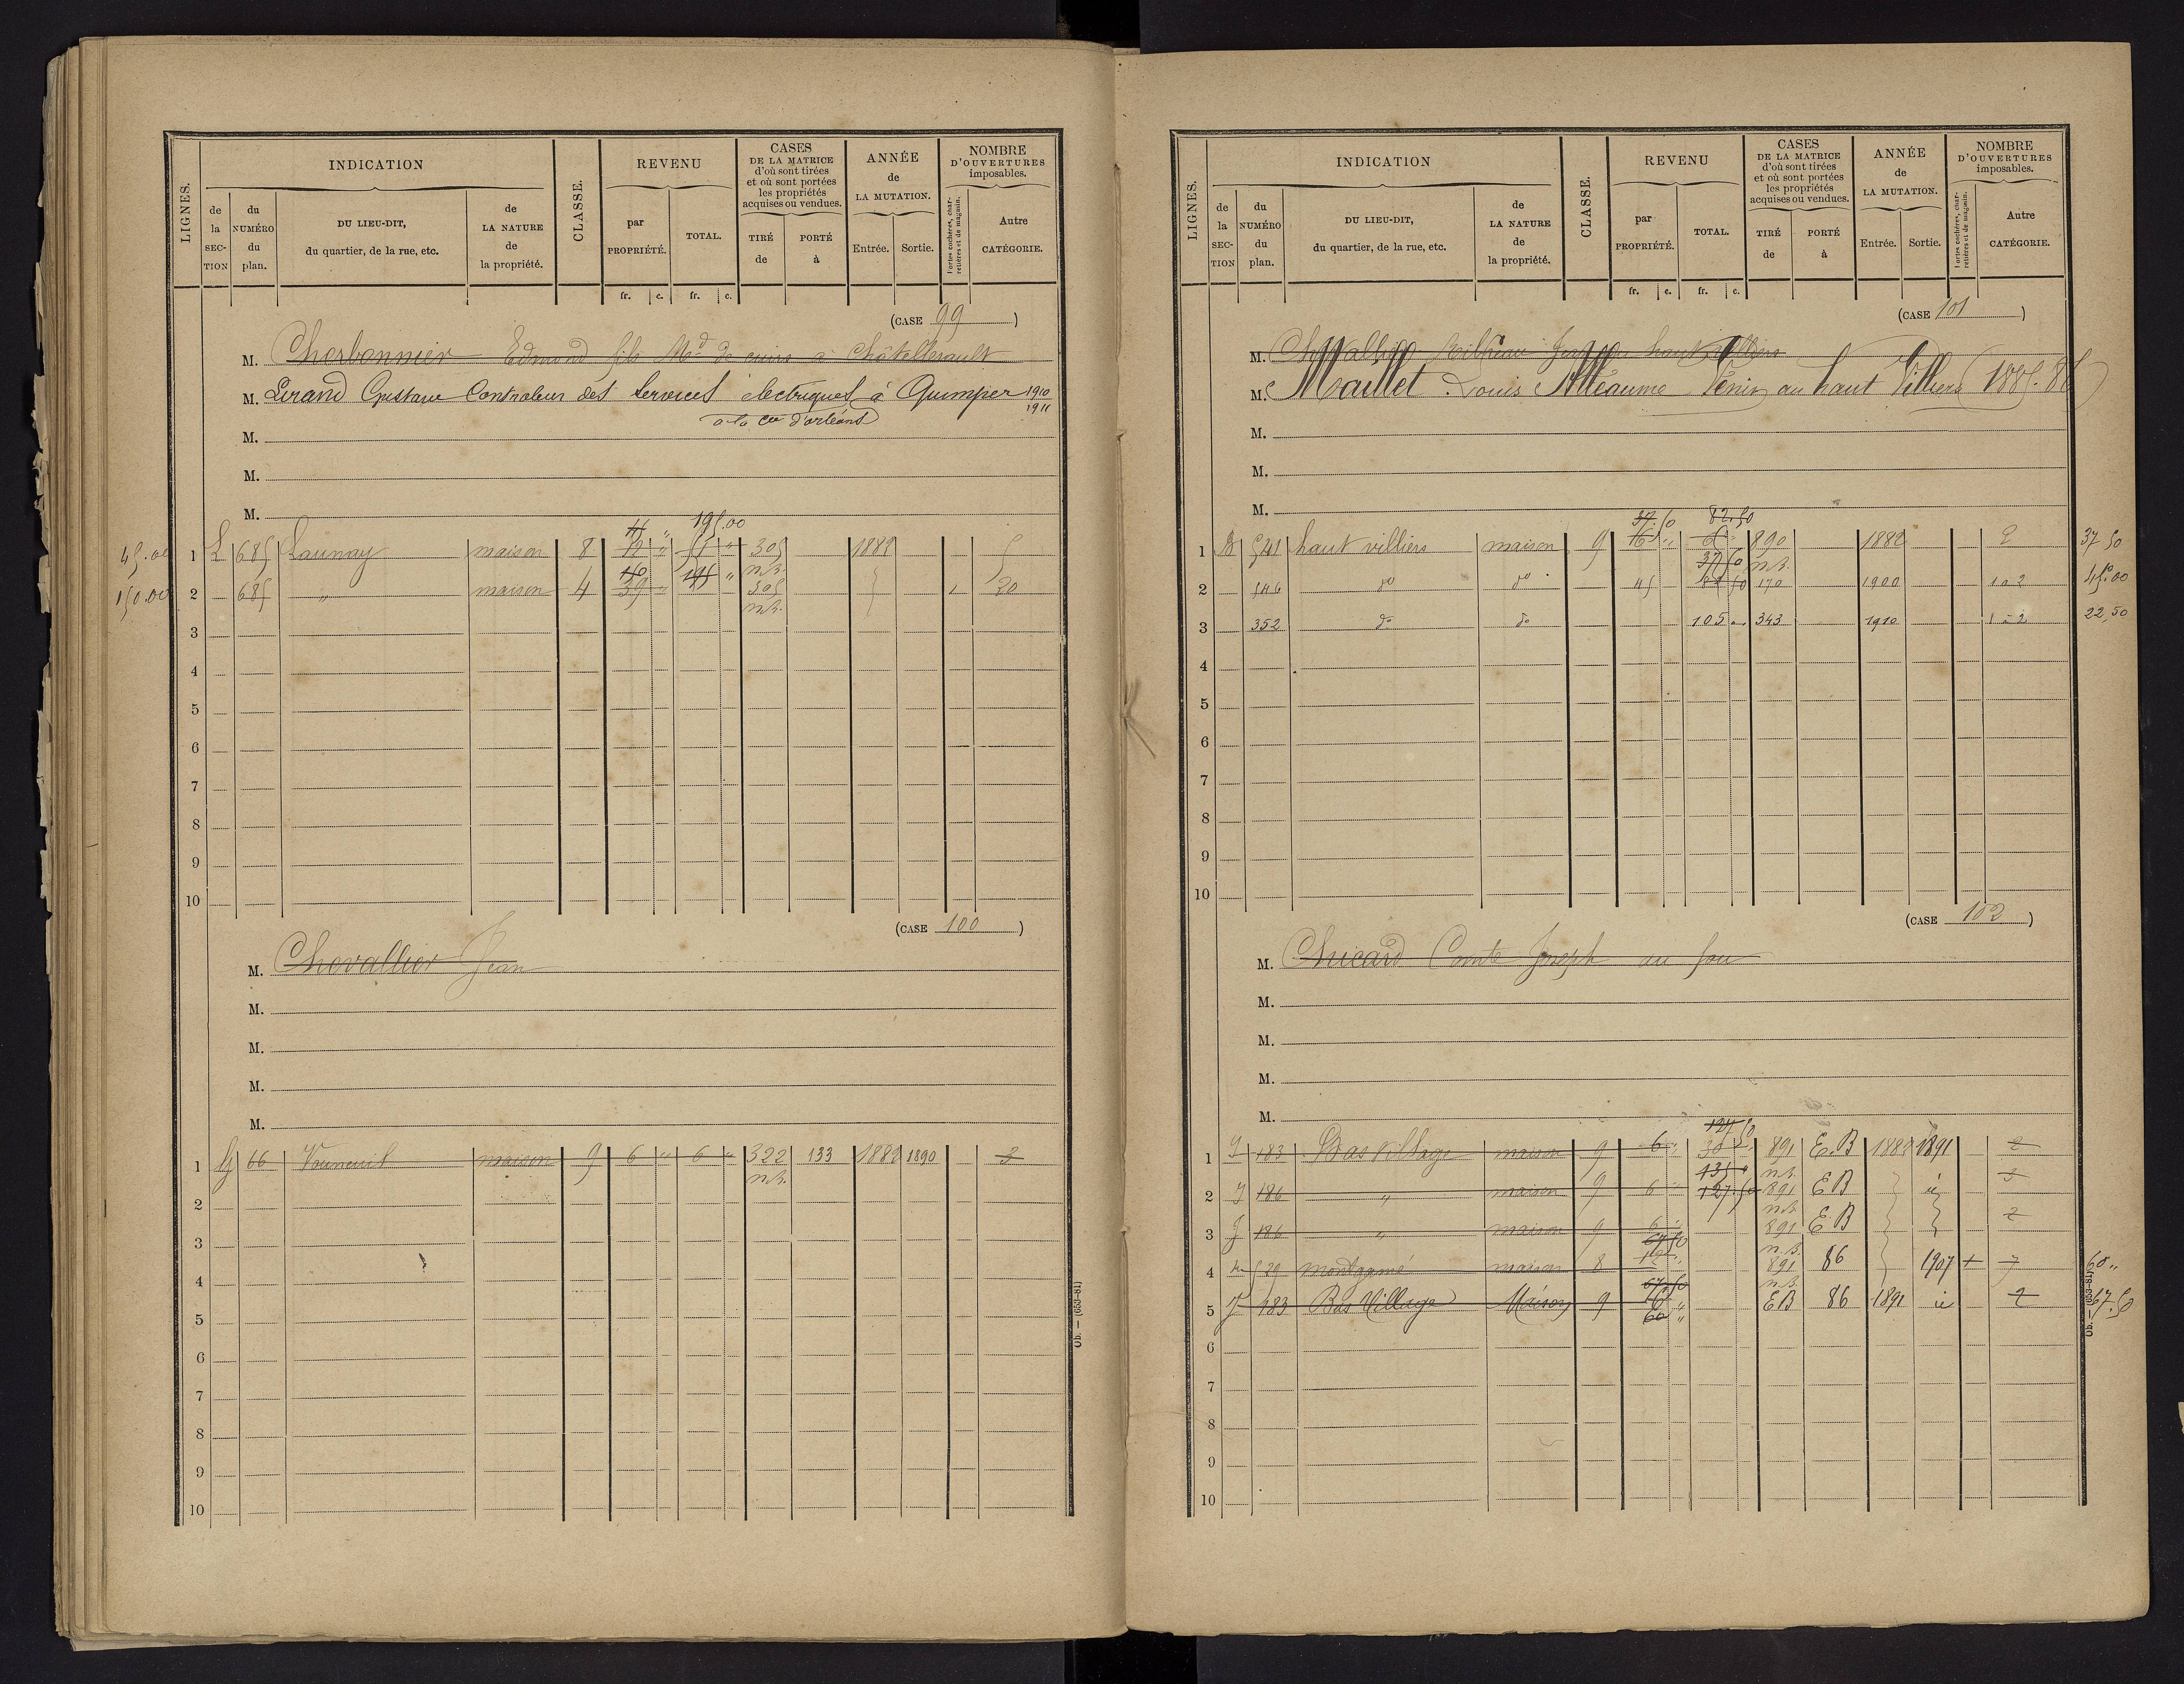 LIGNES.
INDICATION
de la SECTION
du NUMÉRO du plan.
DU LIEU-DIT, du quartier, de la rue, etc.
de LA NATURE de la propriété.
CLASSE.
REVENU
par PROPRIÉTÉ.
TOTAL.
fr. c. fr. c.
CASES DE LA MATRICE d'où sont tirées et où sont portées les propriétés acquises ou vendues.
TIRÉ de
PORTÉ à
ANNÉE de LA MUTATION.
Entrée. Sortie.
NOMBRE D'OUVERTURES imposables.
Portes cochères, charretières et de magasin.
Autre CATÉGORIE.
(CASE 99)
M. Charbonnier Edmond fils Md de cuirs à Châtellerault
M. Gustave Controleur des Services électriques à Quimper 1910
1911
à la Cie d'orléans
M.
M.
M.
195.00
45.00 1 L 685 Launay maison 8 12 " 51 " 305 1882 5
n.b.
150.00 2 685 " maison 4 39 " 195 " 305 1 20
n.b.
3
4
5
6
7
8
9
10
(CASE 100)
M. Chevallier Jean
M.
M.
M.
M.
1 G 66 Vouneuil maison 9 6 " 6 " 322 133 1882 1890 3
n.b.
2
3
4
5
6
7
8
9
10
Ob. — (653-81)
LIGNES.
INDICATION
de la SECTION
du NUMÉRO du plan.
DU LIEU-DIT, du quartier, de la rue, etc.
de LA NATURE de la propriété.
CLASSE.
REVENU
par PROPRIÉTÉ.
TOTAL.
fr. c. fr. c.
CASES DE LA MATRICE d'où sont tirées et où sont portées les propriétés acquises ou vendues.
TIRÉ de
PORTÉ à
ANNÉE de LA MUTATION.
Entrée. Sortie.
NOMBRE D'OUVERTURES imposables.
Portes cochères, charretières et de magasin.
Autre CATÉGORIE.
(CASE 101)
M. haut villiers
M. Maillet Louis Alléaume au haut Villiers
M.
M.
M.
37.50 82.50
1 B 541 haut villiers maison 9 6 " 6 " 890 1882 2 37 50
37 50 n.b.
2 546 do do 45 82 50 170 1900 1 à 2 45.00
3 352 do do 105 " 343 1910 1 à 2 22,50
4
5
6
7
8
9
10
(CASE 102)
M. Chicard Comte Joseph au fou
M.
M.
M.
M.
127 50
1 J 183 Bas Village maison 9 6 " 30 891 E.B 1882 1891 2
135 " n.b.
2 J 186 " maison 9 6 " 127.50 891 EB
n.b.
3 J 186 " maison 9 6 " 891 E.B 2
67 50 n.b.
4 529 montgame maison 8 12 " 891 86 1907
67.50 n.b. 60 "
5 J 183 Bas Village Maison 9 6 " EB 86 1891 2 67.50
60 "
6
7
8
9
10
Ob. — (653-81)